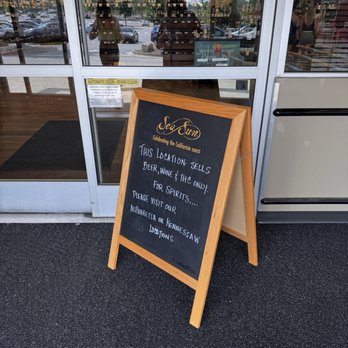 AUTOMATIC DOOR
Sea Sun
Celebrating the California coast
THIS LOCATION SELLS
BEER, WINE & THC ONLY
FOR SPIRITS....
PLEASE VISIT OUR
ALPHARETTA OR KENNESAW
LOCATIONS